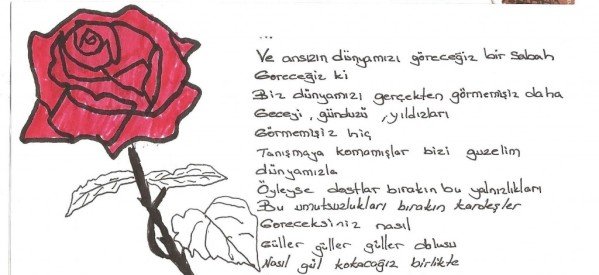 ...
Ve ansızın dünyamızı göreceğiz bir sabah
Göreceğiz ki
Biz dünyamızı gerçekten görmemişiz daha
Geceyi, gündüzü, yıldızları
Görmemişiz hiç
Tanışmaya komamışlar bizi guzelim
dünyamızla
Öyleyse dostlar bırakın bu yalnızlıkları
Bu umutsuzlukları bırakın kardeşler
Göreceksiniz nasıl
Güller güller güller dolusu
Nasıl gül kokacağız birlikte